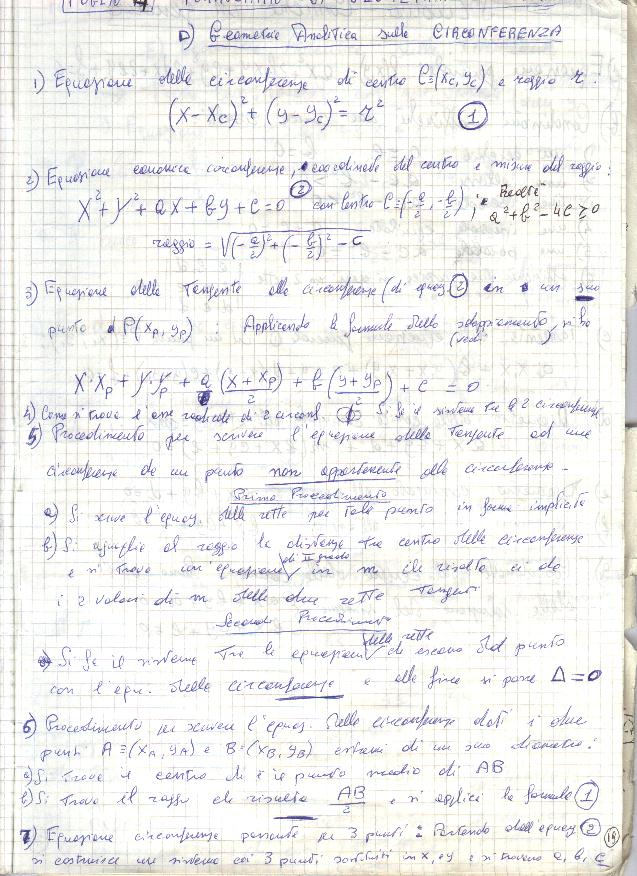 FOGLIO 14 FORMULARIO DI GEOMETRIA
D) Geometria Analitica sulla CIRCONFERENZA
1) Equazione della circonferenza di centro C≡(xc, yc) e raggio r:
(x-xc)² + (y-yc)² = r² 1
2) Equazione canonica circonferenza, coordinate del centro e misura del raggio:
x² + y² + ax + by + c = 0 2 con Centro C≡(-a/2, -b/2); Realtà a²+b²-4c≥0
raggio = √((-a/2)² + (-b/2)² - c)
3) Equazione della Tangente alla circonferenza (di equaz 2 in un suo
punto P(xp, yp) : Applicando la formula dello sdoppiamento, si ha
(vedi )
x·xp + y·yp + a (x+xp)/2 + b (y+yp)/2 + c = 0
4) Come si trova l'asse radicale di 2 circonf. Si fa il sistema tra le 2 circonferenze
5) Procedimento per scrivere l'equazione della Tangente ad una
circonferenza da un punto non appartenente alla circonferenza -
Primo Procedimento
a) Si scrive l'equaz. della retta per tale punto in forma implicita
b) Si uguaglia al raggio la distanza tra centro della circonferenza
e si trova un'equazione di II grado in m che risolta ci da
i 2 valori di m delle due rette Tangenti
Secondo Procedimento
Si fa il sistema tra le equazioni della retta di escono dal punto
con l'equ. della circonferenza e alla fine si pone Δ=0
6) Procedimento per scrivere l'equaz. della circonferenza dati i due
punti A≡(xA, yA) e B≡(xB, yB) estremi di un suo diametro:
a) Si trova il centro che è il punto medio di AB
b) Si trova il raggio che risulta AB/2 e si applica la formula 1
7) Equazione circonferenza passante per 3 punti: Partendo dall'equaz 2
si costruisce un sistema coi 3 punti sostituiti in x, ed y e si trovano a, b, c
14